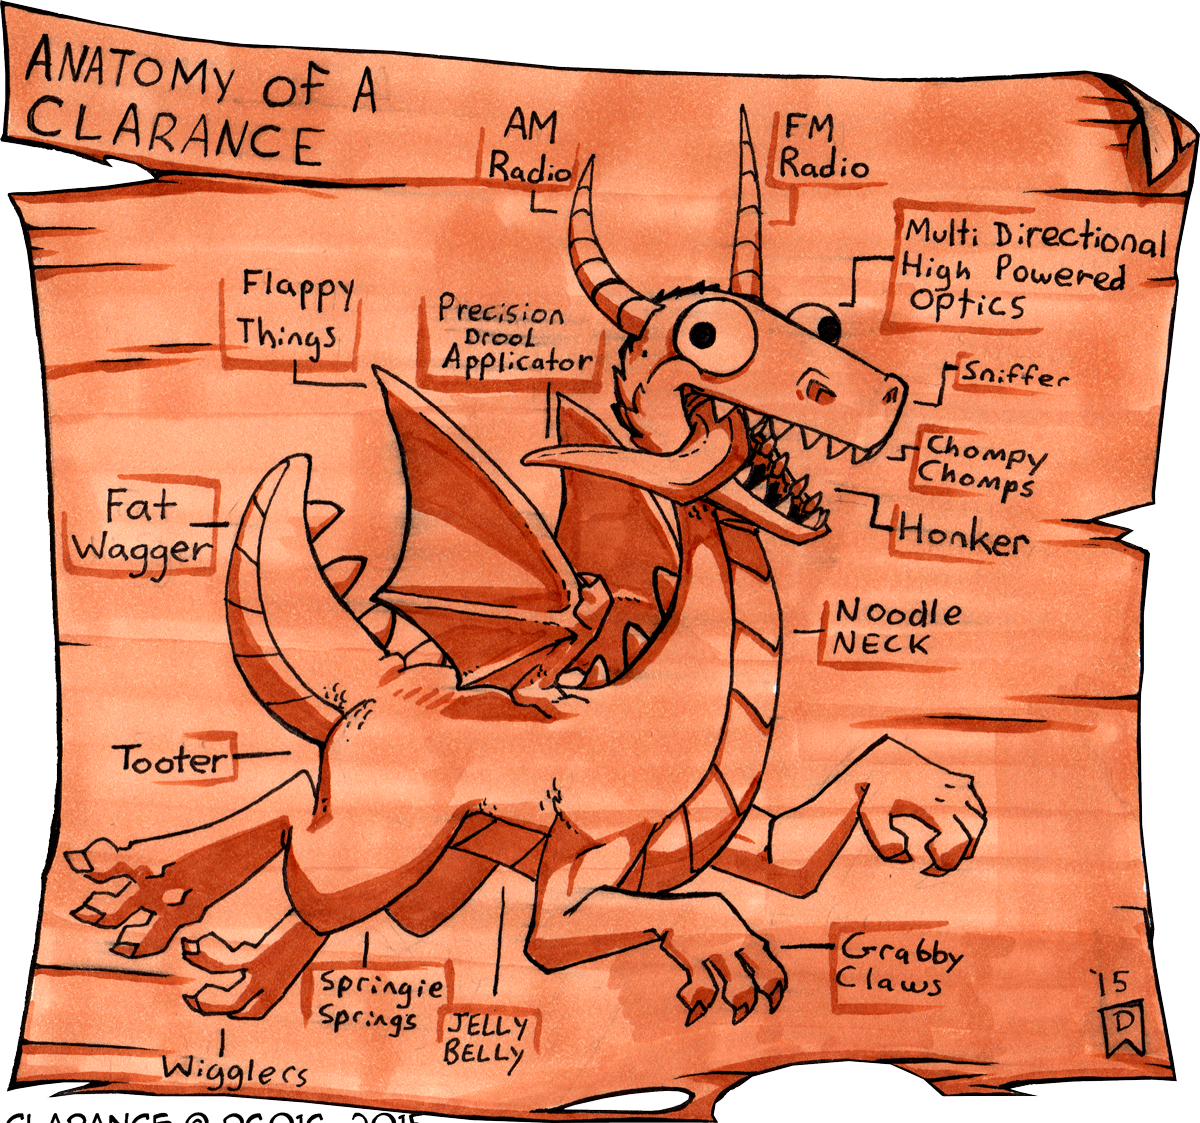 ANATOMY of A
CLARANCE
AM
Radio
FM
Radio
Multi Directional
High Powered
Optics
Flappy
Things
Precision
Drool
Applicator
Sniffer
Chompy
Chomps
Honker
Fat
Wagger
Noodle
NECK
Tooter
Grabby
Claws
Springie
Springs
JELLY
BELLY
Wigglers
'15
D
CLARANCE @
2015